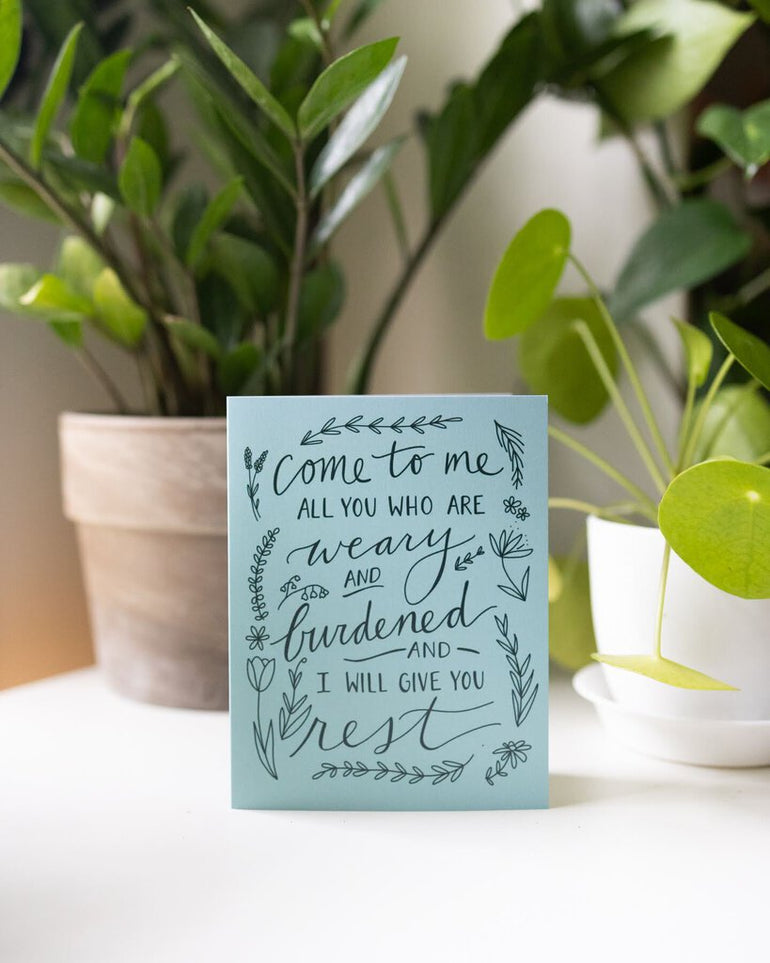 Come to me
ALL YOU WHO ARE
weary
AND
burdened
AND
I WILL GIVE YOU
rest